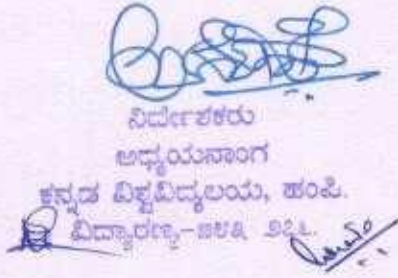 ನಿರ್ದೇಶಕರು
ಅಧ್ಯಯನಾಂಗ
ಕನ್ನಡ ವಿಶ್ವವಿದ್ಯಲಯ, ಹಂಪಿ.
ವಿದ್ಯಾರಣ್ಯ-೫೮೩ ೨೭೬.